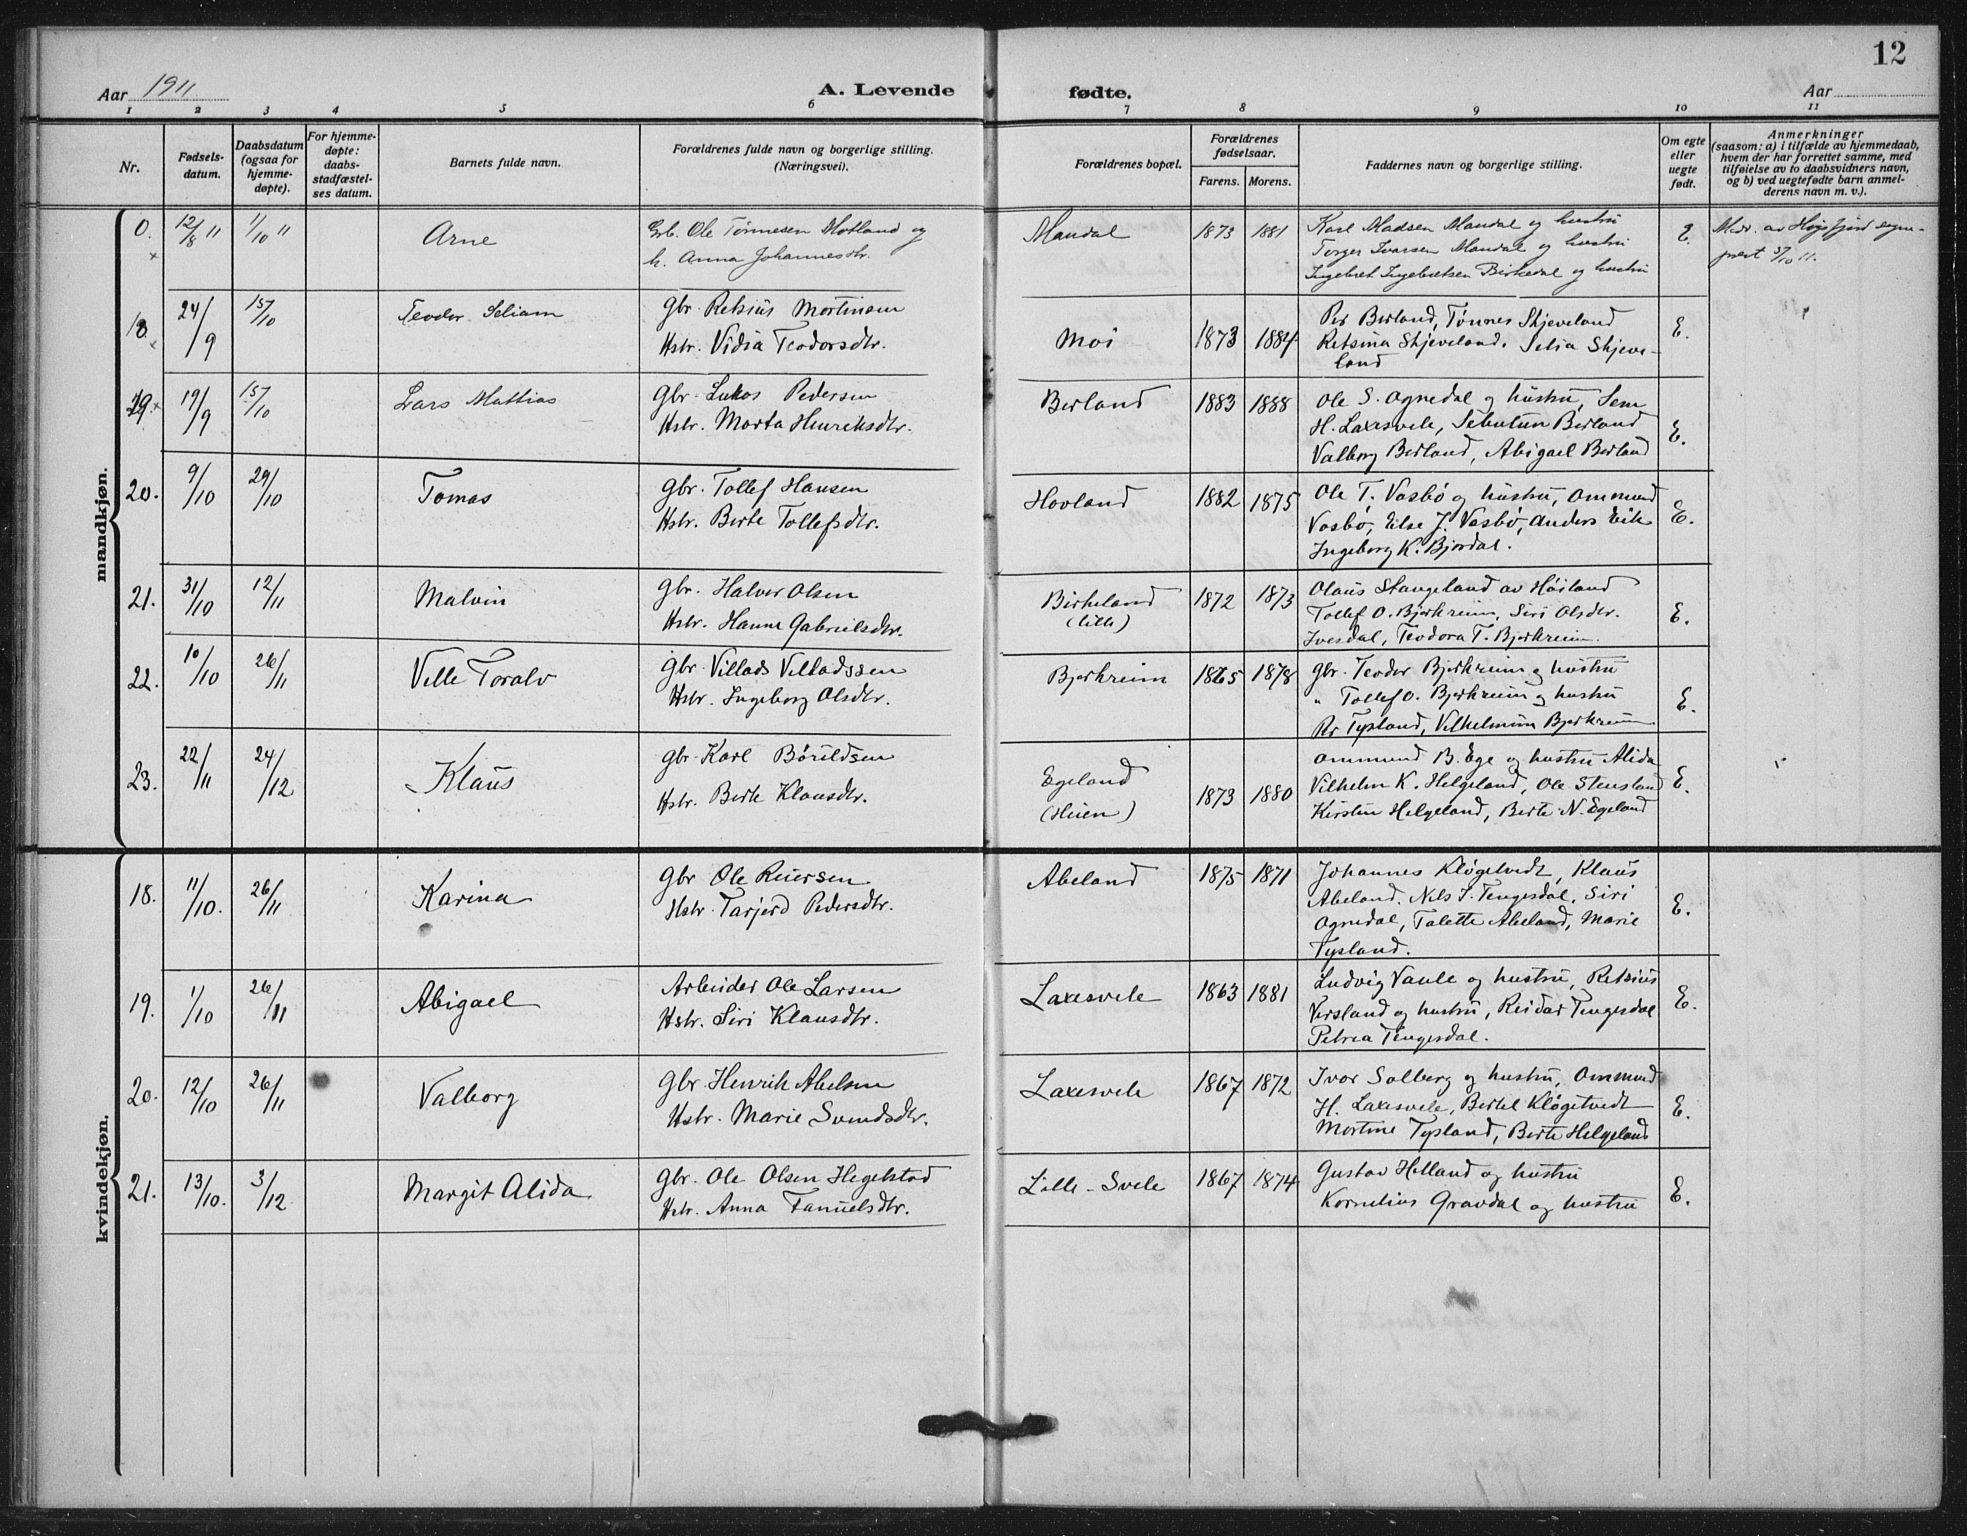 12
Aar 1911 A. Levende fødte. Aar
1 2 3 4 5 6 7 8 9 10 11
Nr. Fødsels-datum. Daabsdatum (ogsaa for hjemme-døpte). For hjemme-døpte: daabs-stadfæstel-ses datum. Barnets fulde navn. Forældrenes fulde navn og borgerlige stilling. (Næringsvei). Forældrenes bopæl. Forældrenes fødselsaar. Farens. Morens. Faddernes navn og borgerlige stilling. Om egte eller uegte født. Anmerkninger (saasom: a) i tilfælde av hjemmedaab, hvem der har forrettet samme, med tilføielse av to daabsvidners navn, og b) ved uegtefødte barn anmel-derens navn m. v.).
mandkjøn.
0. 12/8 " 1/10 " Arne Grb. Ole Tønnesen Motland og Mandal 1873 1881 Karl Madsen Mandal og hustru E. Medr. av Høgsfjord sogne-
h. Anna Johannesdtr. Torger Ivarsen Mandal og hustru prest 3/10 11.
Ingebret Ingebretsen Birkedal og hustru
18. 24/9 15/10 Teodor Seliam Gbr. Retsius Mortinsen Moi 1873 1884 Per Berland, Tønnes Skjeveland E.
Hstr. Vidia Teodorsdtr. Retsina Skjeveland. Selia Skjeve-
land
19. 19/9 15/10 Lars Mattias Gbr. Lukas Pedersen Berland 1883 1888 Ole S. Ognedal og hustru, Sem
Hstr. Marta Henriksdtr. H. Laxesvele, Berland E.
Valborg Berland, Abigael Berland
20. 9/10 29/10 Tomas Gbr. Tollef Hansen Hovland 1882 1875 Ole T. Vasbø og hustru, Ommund E.
Hstr. Berte Tollefsdtr. Vasbø, Else J. Vasbø, Anders Eik
Ingeborg K. Bjordal.
21. 31/10 12/11 Malvin Gbr. Halvor Olsen Birkeland 1872 1873 Olaus Stangeland av Høiland
Hstr. Hanne Gabrielsdtr. (lille) Tollef O. Bjerkreim, Siri Olsdtr. E.
Ivesdal, Teodora T. Bjerkreim.
22. 10/10 26/11 Ville Toralv Gbr. Villads Villadssen Bjerkreim 1865 1878 Gbr. Teodor Bjerkreim og hustru
Hstr. Ingeborg Olsdtr. " Tollef O. Bjerkreim og hustru E.
Per Tysland, Vilhelmine Bjerkreim
23. 22/11 24/12 Klaus Gbr. Karl Børildsen Egeland 1873 1880 Ommund B. Ege og hustru Alida E.
Hstr. Berte Klausdtr. (Heien) Vilhelm K. Helgeland, Ole Stensland
Kirsten Helgeland, Berte N. Egeland
kvindekjøn.
18. 11/10. 26/11 Karina Gbr Ole Reiersen Abeland 1875 1871 Johannes Kløgetvedt, Klaus
Hstr. Tarjerd Pedersdtr. Abeland, Nils J. Tengesdal, Siri E.
Ognedal, Talette Abeland, Marie
Tysland.
19. 1/10 26/11 Abigael Arbeider Ole Larsen Laxesvele 1863 1881 Ludvig Vaule og hustru, Retsius E.
Hstr. Siri Klausdtr. Versland og hustru, Reidar Tengesdal
Petrea Tengesdal.
20. 12/10 26/11 Valborg Gbr Henrik Abelsen Laxesvele 1867 1872 Ivar Solberg og hustru, Ommund
Hstr. Marie Svendsdtr. H. Laxesvele, Bertel Kløgetvedt E.
Mortine Tysland, Berte Helgeland
21. 13/10. 3/12 Margit Alida Gbr. Ole Olsen Hegelstad Lille-Svele 1867 1874 Gustav Helland og hustru E.
Hstr. Anna Fanuelsdtr. Kornelius Gravdal og hustru